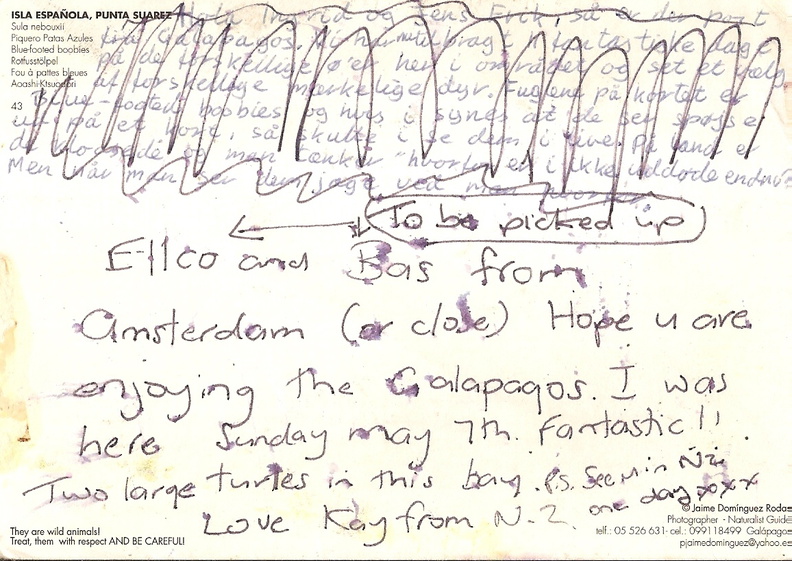 ISLA ESPAÑOLA, PUNTA SUAREZ
Sula nebouxii
Piquero Patas Azules
Blue-footed boobies
Rotfusstölpel
Fou à pattes bleues
Aoashi-Ktsuodori
43
Ingrid og Jens Erik, så er der post
fra Galapagos. Vi har tilbragt fantastiske dage
på de forskellige øer her i området og set et væld
af forskellige mærkelige dyr. Fuglene på kortet er
Blue-footed boobies og hvis I synes at de ser sjove
ud på et kort, så skulle I se dem i live. På land er
de og man tænker hvorfor er I ikke uddøde endnu?
Men når man ser dem jage ved man
To be picked up
Ellco and Bas from
Amsterdam (or close) Hope u are
enjoying the Galapagos. I was
here Sunday may 7th. Fantastic!!
Two large turtles in this bay. P.S. See u in N.Z
one day xoxx
Love Kay from N.Z.
They are wild animals!
Treat, them with respect AND BE CAREFUL!
© Jaime Domínguez Rodas
Photographer - Naturalist Guide
telf.: 05 526 631- cel.: 099118499 Galápagos
pjaimedominguez@yahoo.es